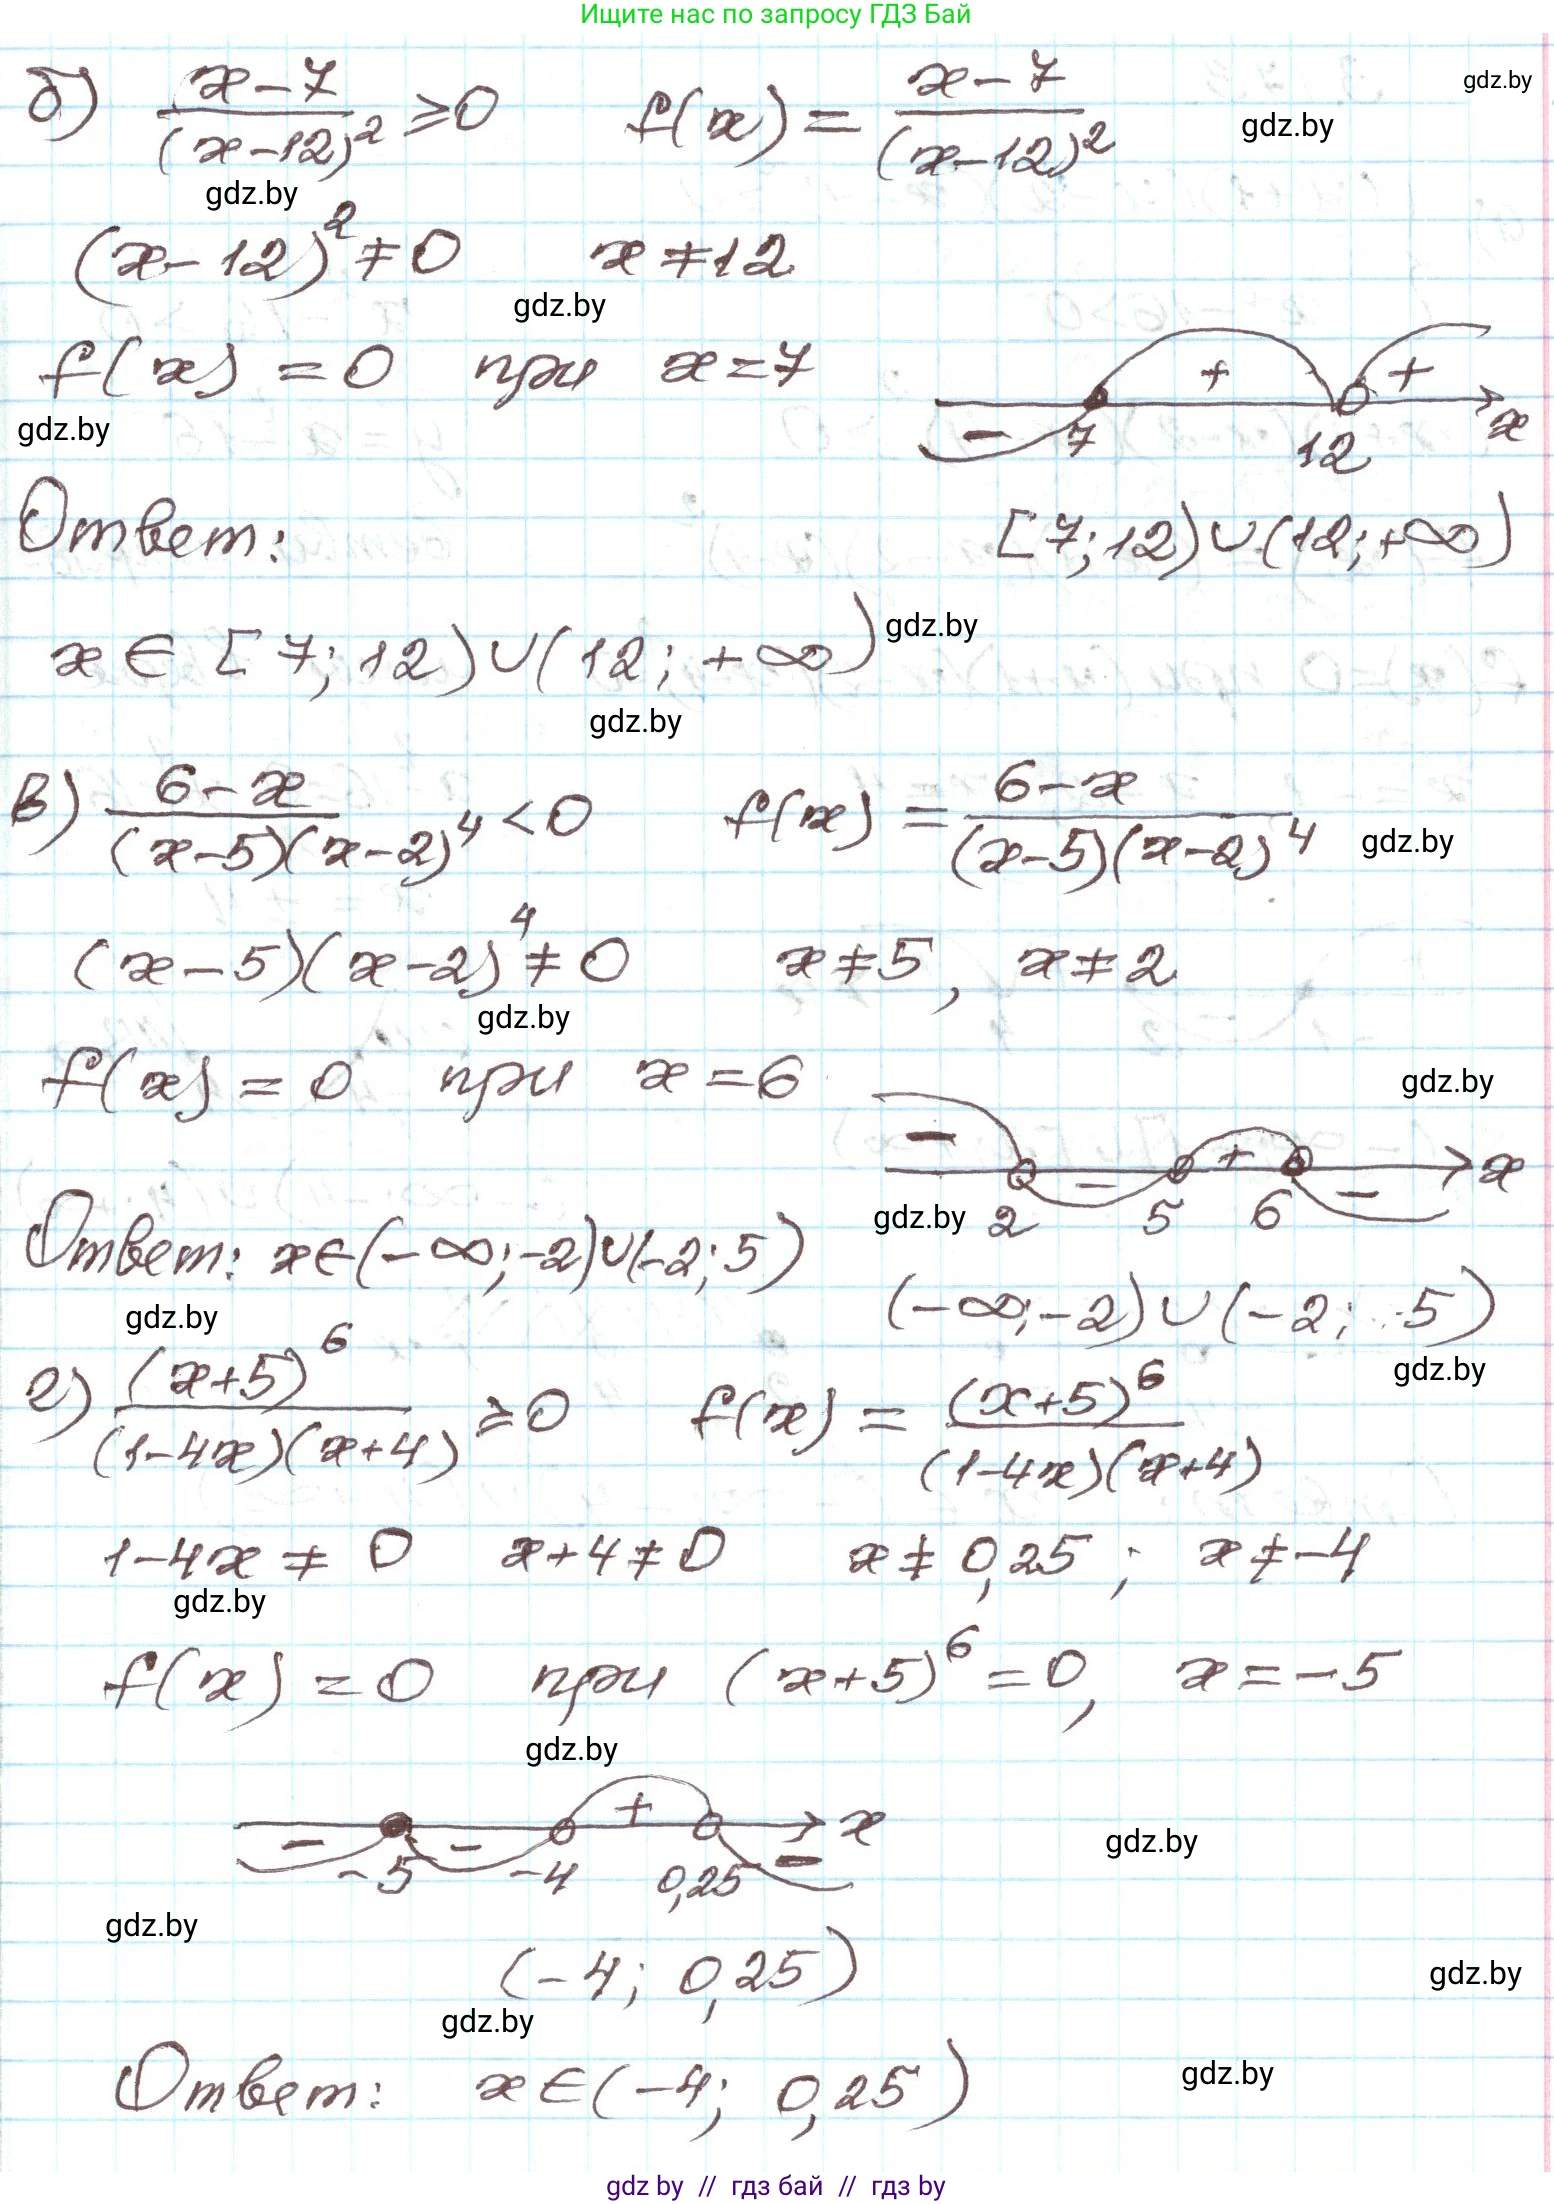 Ищите нас по запросу ГДЗ Бай
б) (x-7)/(x-12)² ≥ 0 f(x) = (x-7)/(x-12)²
gdz.by
gdz.by
gdz.by
(x-12)² ≠ 0 x ≠ 12
gdz.by
f(x) = 0 при x = 7
- 7 + 12 + x
gdz.by
Ответ:
[7; 12) ∪ (12; +∞)
x ∈ [7; 12) ∪ (12; +∞)
gdz.by
gdz.by
в) (6-x)/((x-5)(x-2)⁴) < 0 f(x) = (6-x)/((x-5)(x-2)⁴)
gdz.by
(x-5)(x-2)⁴ ≠ 0 x ≠ 5, x ≠ 2
gdz.by
f(x) = 0 при x = 6
gdz.by
- 2 - 5 + 6 - x
gdz.by
Ответ: x ∈ (-∞; -2) ∪ (-2; 5)
(-∞; -2) ∪ (-2; 5)
gdz.by
gdz.by
г) (x+5)⁶/((1-4x)(x+4)) ≥ 0 f(x) = (x+5)⁶/((1-4x)(x+4))
1-4x ≠ 0 x+4 ≠ 0 x ≠ 0,25; x ≠ -4
gdz.by
f(x) = 0 при (x+5)⁶ = 0, x = -5
gdz.by
- -5 - -4 + 0,25 - x
gdz.by
gdz.by
(-4; 0,25)
gdz.by
gdz.by
Ответ: x ∈ (-4; 0,25)
gdz.by
gdz by // гдз бай // гдз by